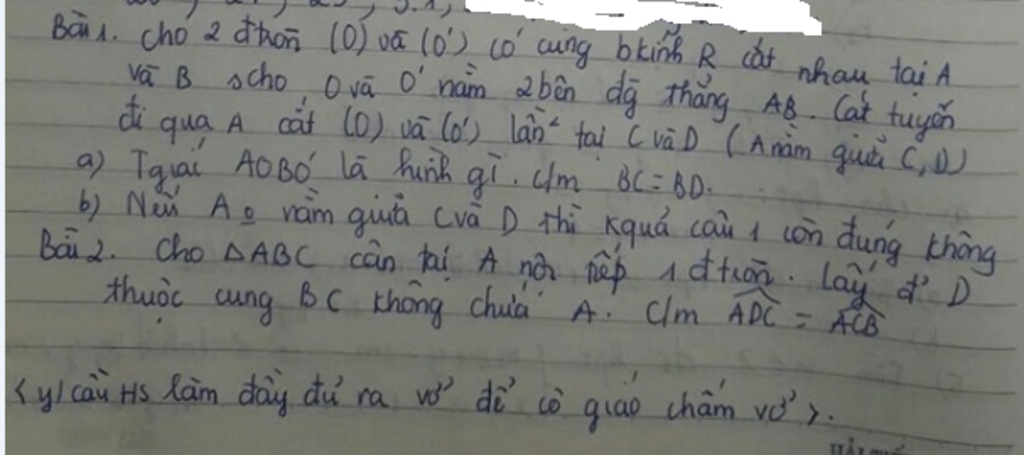 Bài 1. Cho 2 đtròn (O) và (O') có cùng bkính R cắt nhau tại A
và B scho O và O' nằm 2 bên đg thẳng AB. Cát tuyến
đi qua A cắt (O) và (O') lần² tại C và D (A nằm giữa C, D)
a) Tgiác AOBO' là hình gì. C/m BC = BD.
b) Nếu A o nằm giữa C và D thì kquả câu 1 còn đúng không
Bài 2. Cho △ABC cân tại A nội tiếp 1 đtròn. Lấy đ' D
thuộc cung BC không chứa A. C/m ADC = ACB
<y/cầu Hs làm đầy đủ ra vở để cô giáo chấm vở>.